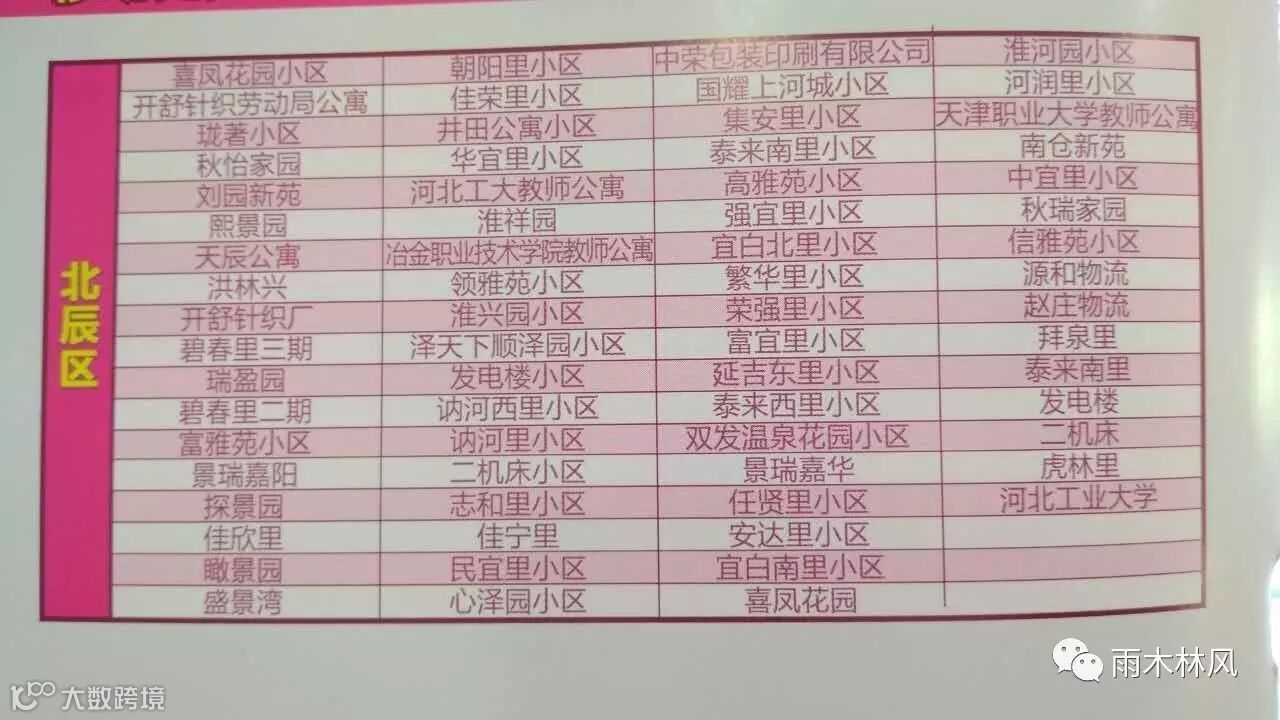 北辰区
喜凤花园小区 朝阳里小区 中荣包装印刷有限公司 淮河园小区
开舒针织劳动局公寓 佳荣里小区 国耀上河城小区 河润里小区
珑著小区 井田公寓小区 集安里小区 天津职业大学教师公寓
秋怡家园 华宜里小区 泰来南里小区 南仓新苑
刘园新苑 河北工大教师公寓 高雅苑小区 中宜里小区
熙景园 淮祥园 强宜里小区 秋瑞家园
天辰公寓 冶金职业技术学院教师公寓 宜白北里小区 信雅苑小区
洪林兴 领雅苑小区 繁华里小区 源和物流
开舒针织厂 淮兴园小区 荣强里小区 赵庄物流
碧春里三期 泽天下顺泽园小区 富宜里小区 拜泉里
瑞盈园 发电楼小区 延吉东里小区 泰来南里
碧春里二期 讷河西里小区 泰来西里小区 发电楼
富雅苑小区 讷河里小区 双发温泉花园小区 二机床
景瑞嘉阳 二机床小区 景瑞嘉华 虎林里
探景园 志和里小区 任贤里小区 河北工业大学
佳欣里 佳宁里 安达里小区
瞰景园 民宜里小区 宜白南里小区
盛景湾 心泽园小区 喜凤花园
雨木林风
大数跨境